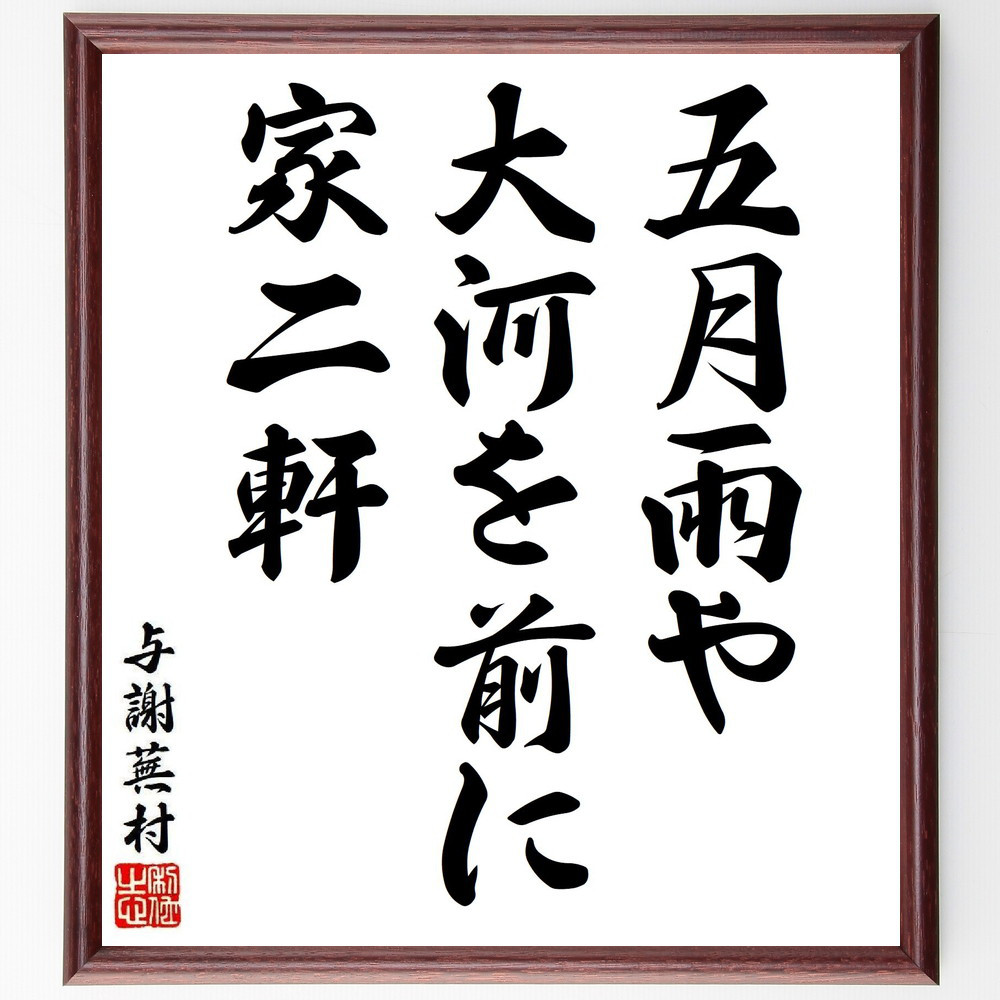 五月雨や
大河を前に
家二軒
与謝蕪村